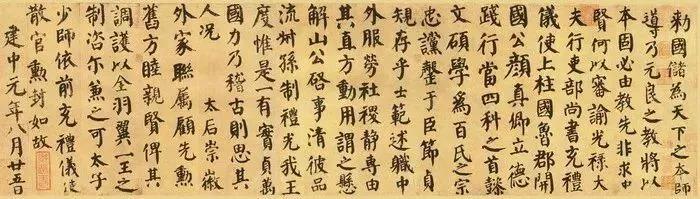 勅國儲為天下之本師
導乃元良之教將以
本固必由教先非求中
賢何以審諭光祿大
夫行吏部尚書充禮
儀使上柱國魯郡開
國公顏真卿立德
踐行當四科之首懿
文碩學為百氏之宗
忠讜罄于臣節貞
規存乎士範述職中
外服勞社稷静專由
其直方動用謂之懸
解山公啓事清彼品
流叔孫制禮光我王
度惟是一有實貞萬
國力乃稽古則思其
人況 太后崇徽
外家聯屬顧先勳
舊方睦親賢俾其
調護以全羽翼一王之
制咨尔兼之可太子
少師依前充禮儀使
散官勳封如故
建中元年八月廿五日